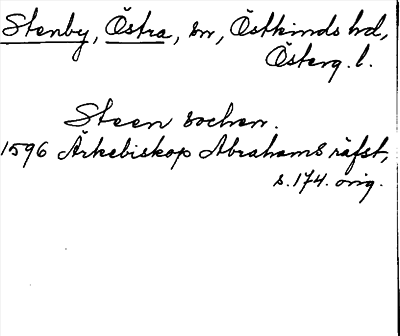 Stenby, Östra, sn, Östkinds hd,
Österg. l.
Steen sochen.
1596 Ärkebiskop Abrahams räfst,
s. 174. orig.